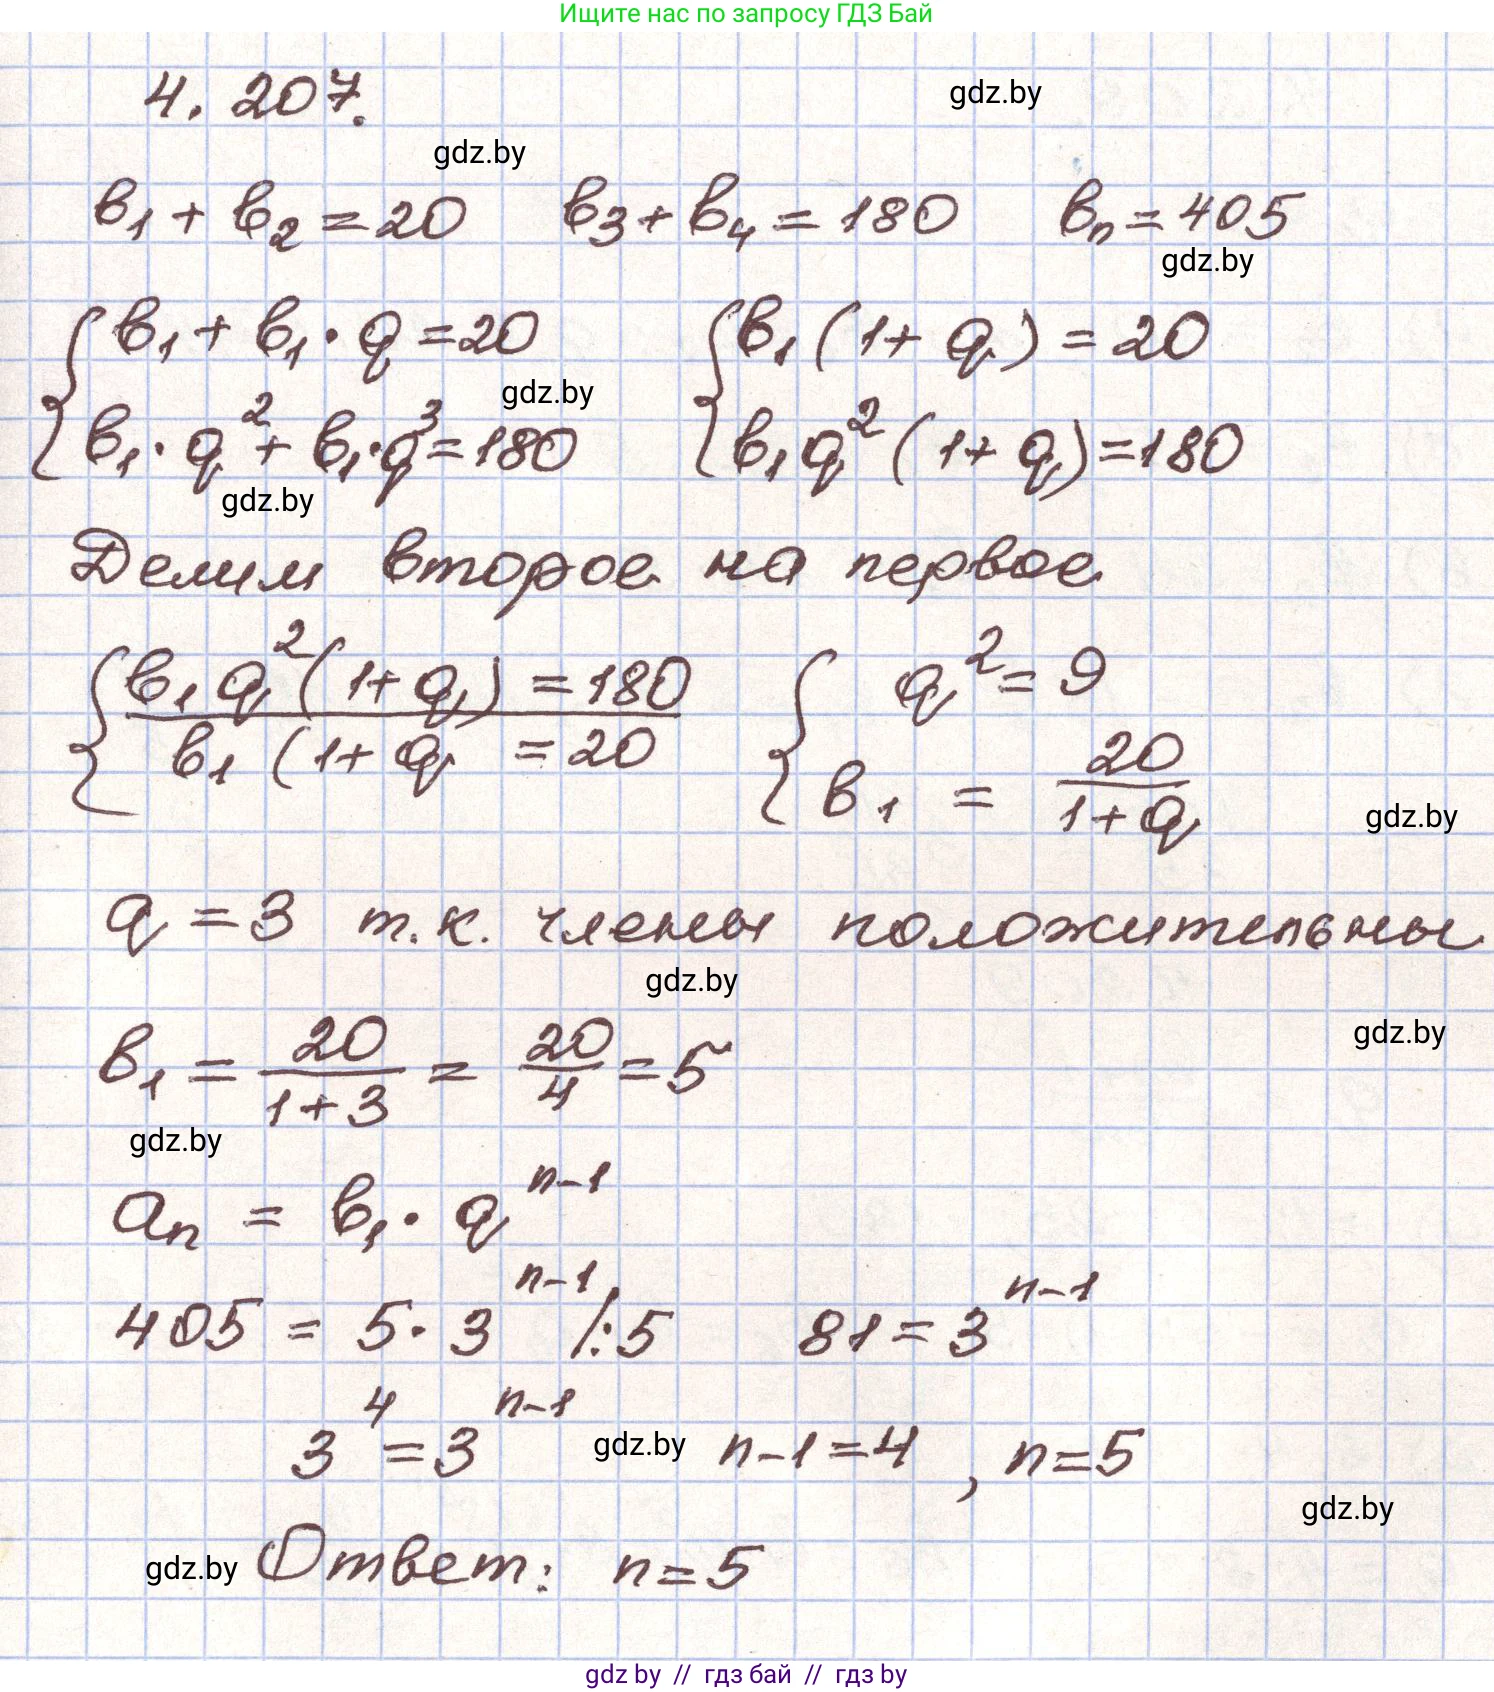 Ищите нас по запросу ГДЗ Бай
4. 207.
gdz.by
gdz.by
в₁ + в₂ = 20   в₃ + в₄ = 180   вₙ = 405
gdz.by
{ в₁ + в₁ · q = 20   { в₁ (1 + q) = 20
gdz.by
в₁ · q² + в₁ · q³ = 180   в₁ q² (1 + q) = 180
gdz.by
Делим второе на первое
{ в₁ q² (1 + q) = 180   { q² = 9
в₁ (1 + q = 20   в₁ = 20/(1 + q)
gdz.by
q = 3 т.к. члены положительны
gdz.by
gdz.by
в₁ = 20/(1 + 3) = 20/4 = 5
gdz.by
aₙ = в₁ · qⁿ⁻¹
405 = 5 · 3ⁿ⁻¹ /:5   81 = 3ⁿ⁻¹
3⁴ = 3ⁿ⁻¹   gdz.by   n - 1 = 4 , n = 5
gdz.by
gdz.by Ответ: n = 5
gdz by // гдз бай // гдз by